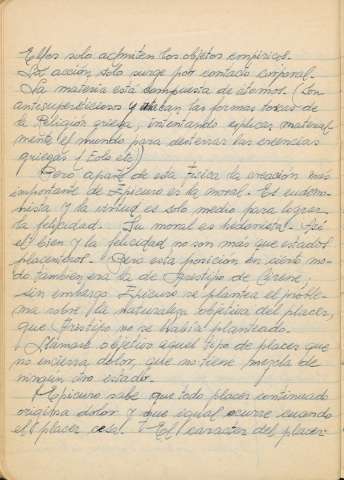 Ellos solo admiten los objetos empíricos.
La acción solo surge por contacto corporal.
La materia está compuesta de atomos. (Son
antisupersticiosos y atacan las formas toscas de
la Religión griega, intentando explicar material-
mente el mundo para desterrar las creencias
griegas (Eolo etc)
Pero aparte de esta física la creación más
importante de Epicuro es la moral. Es eudemo-
nista y la virtud es solo medio para lograr
la felicidad. Su moral es hedonista. Así
el bien y la felicidad no son más que estados
placenteros. Pero esta posición en cierto mo-
do tambien era la de Arestipo de Cirene;
sin embargo Epicuro se plantea el proble-
ma sobre la naturaleza objetiva del placer,
que Arestipo no se había planteado.
Llamase objetivo aquel tipo de placer que
no encierra dolor, que no tiene mezcla de
ningun otro estado.
Epicuro sabe que todo placer continuado
origina dolor y que igual ocurre cuando
el placer cesa. El caracter del placer